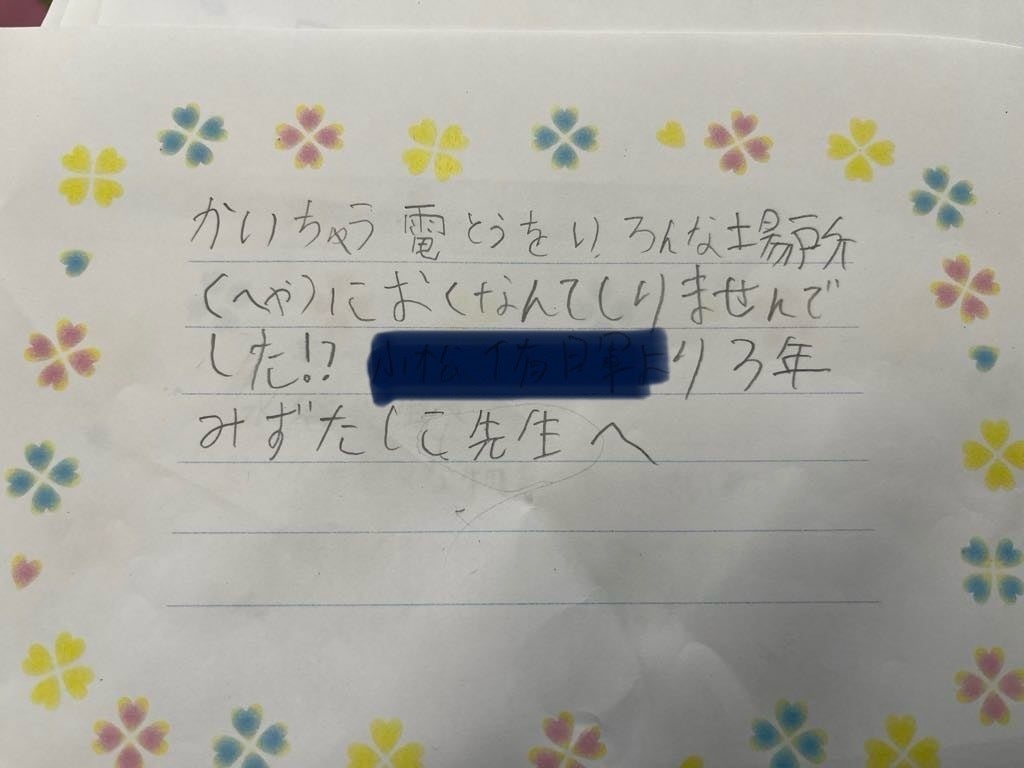 かいちゅう電とうをいろんな場所
(へや)におくなんてしりませんで
した!? より3年
みずたしこ先生へ